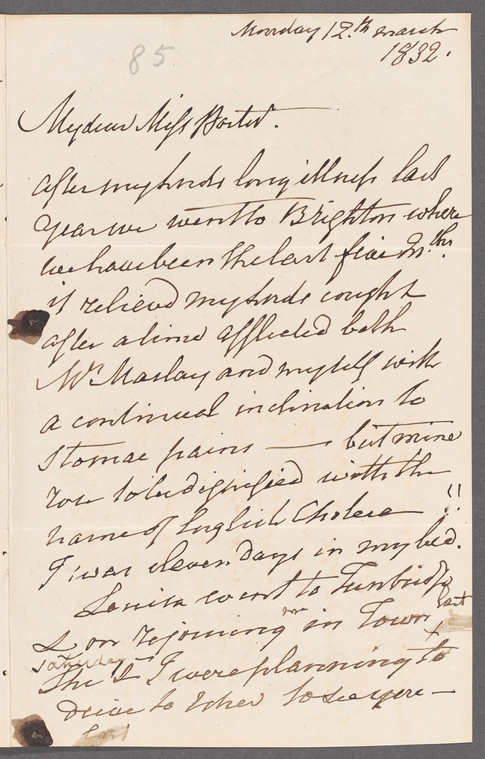 Monday 12.th March
1832.
85
My dear Miss Porter.
after my Lords long illness last
year we went to Brighton where
we have been the last five M.ths
it relieved my Lords cough &
after a time afflicted both
Mr. Maclay and myself with
a continual inclination to
Stomac pains — but mine
rose to be dignified with the
name of English Cholera !!
I was eleven days in my bed.
Louisa went to Tunbridge
& on rejoining me in Town last
Saturday
She & I were planning to
drive to Esher to see you —
but